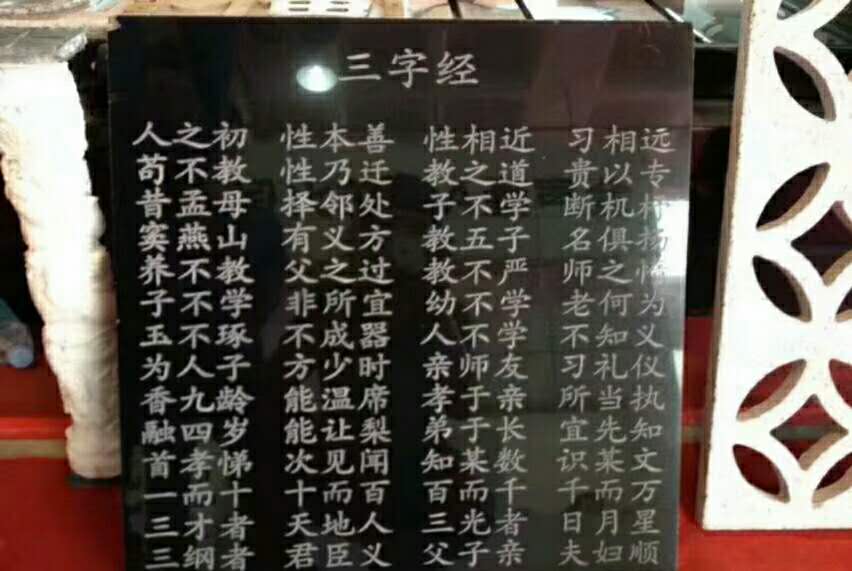 三字经
人之初 性本善 性相近 习相远
苟不教 性乃迁 教之道 贵以专
昔孟母 择邻处 子不学 断机杼
窦燕山 有义方 教五子 名俱扬
养不教 父之过 教不严 师之惰
子不学 非所宜 幼不学 老何为
玉不琢 不成器 人不学 不知义
为人子 方少时 亲师友 习礼仪
香九龄 能温席 孝于亲 所当执
融四岁 能让梨 弟于长 宜先知
首孝悌 次见闻 知某数 识某文
一而十 十而百 百而千 千而万
三才者 天地人 三光者 日月星
三纲者 君臣义 父子亲 夫妇顺